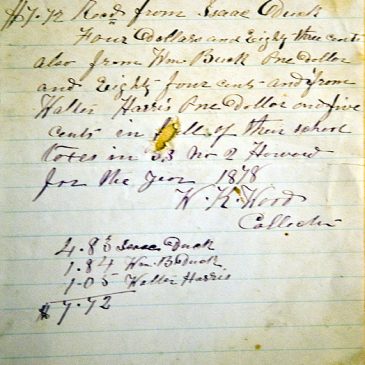 $7.72 Recd from Isaac Duck
Four Dollars and Eighty three cents
also from Wm Buck One Dollar
and Eighty four cents and from
Walter Harris One Dollar and five
cents in full of their school
Taxes in 53 No 2 Howard
for the Year 1878
W. K. Wood
Collector
4.83 Isaac Duck
1.84 Wm. B. Duck
1.05 Walter Harris
$7.72